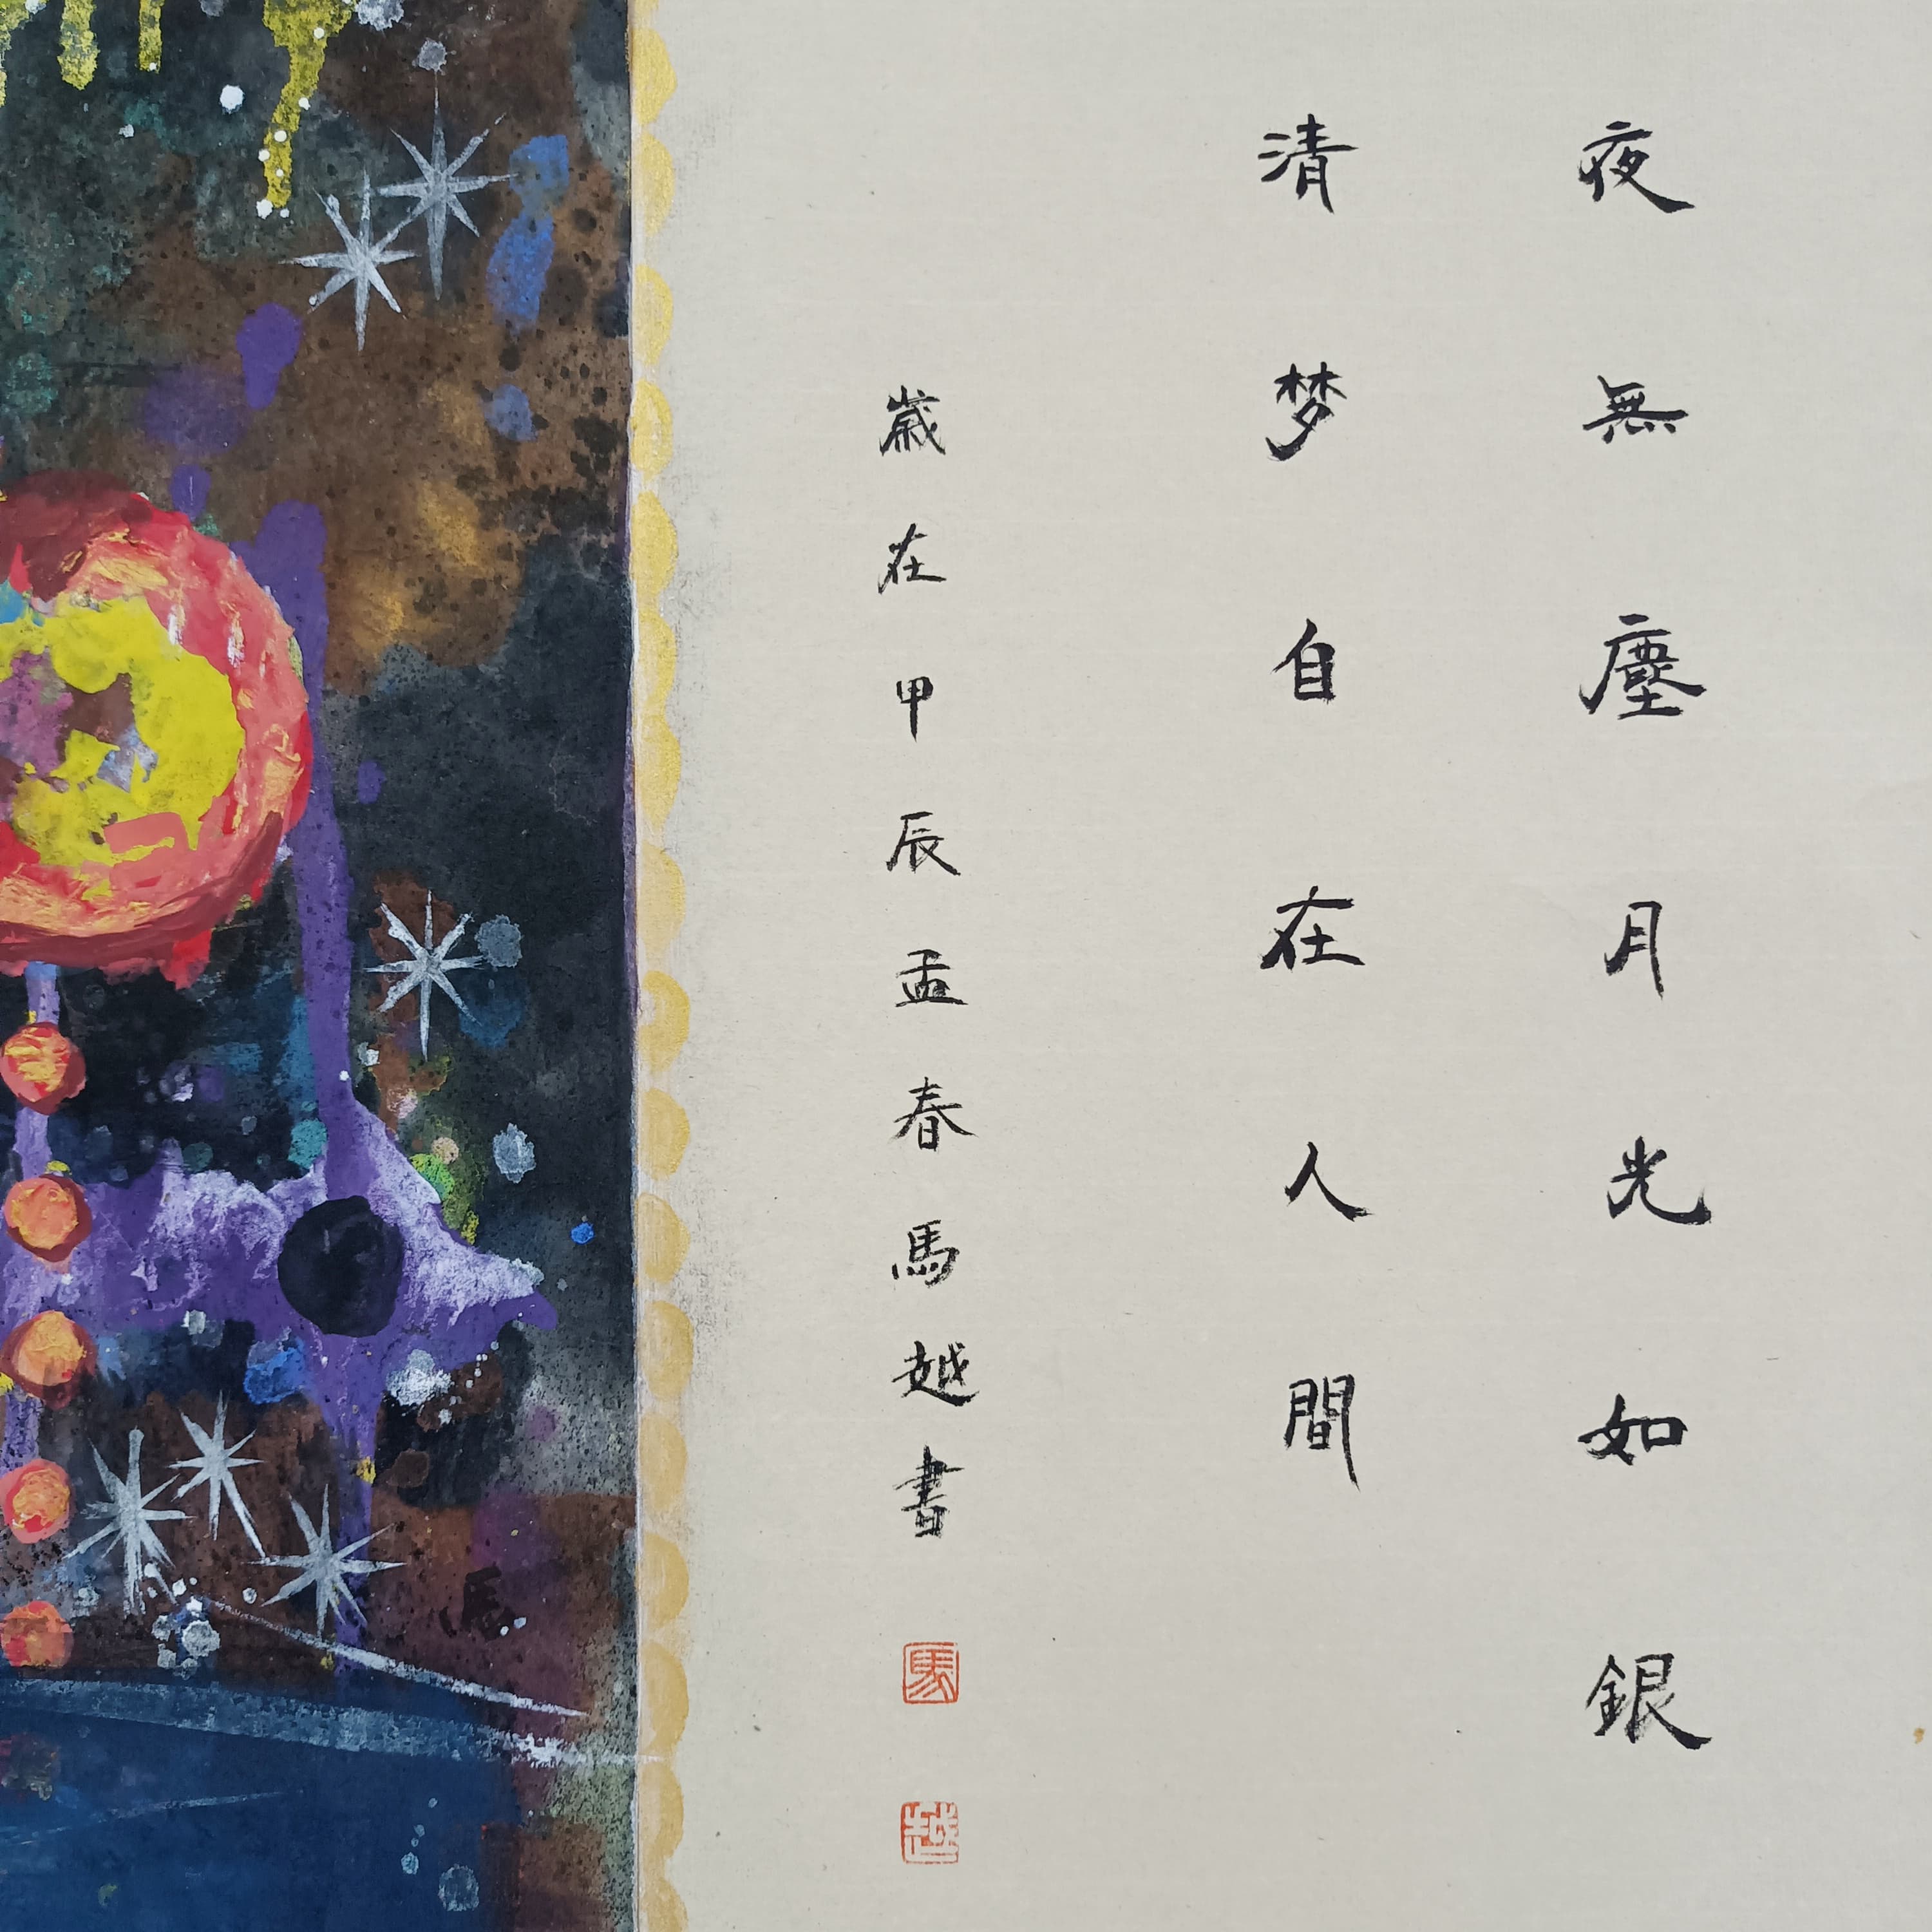 夜無塵月光如銀
清梦自在人間
歲在甲辰孟春馬越書
馬
越